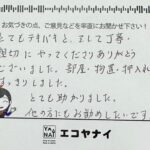 お気づきの点、ご意見などを率直にお聞かせ下さい！
とてもテキパキと、そして丁寧、
親切にやってくださりありがとう
ございました。部屋、物置、押入れ
すっきりしました。
とても助かりました。
他の方にもお勧めしたいです
エコヤナイ